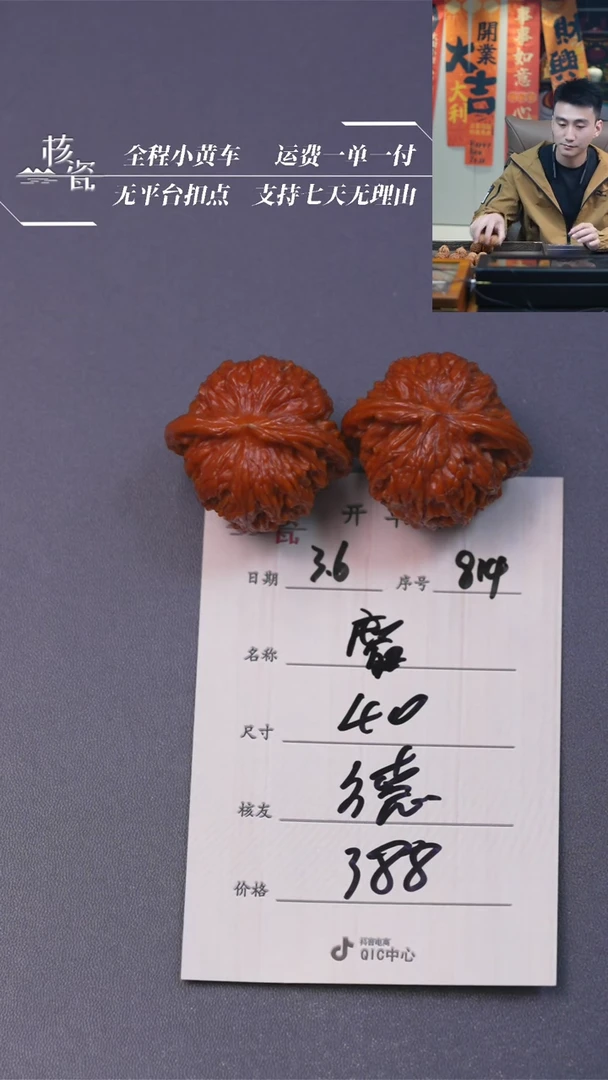 核瓷
全程小黄车 运费一单一付
无平台扣点 支持七天无理由
開業
大吉
大利
事事如意
心
財興
瓷 开
日期 3.6 序号 814
名称
尺寸 40
核友 德
价格 388
抖音电商
QIC中心